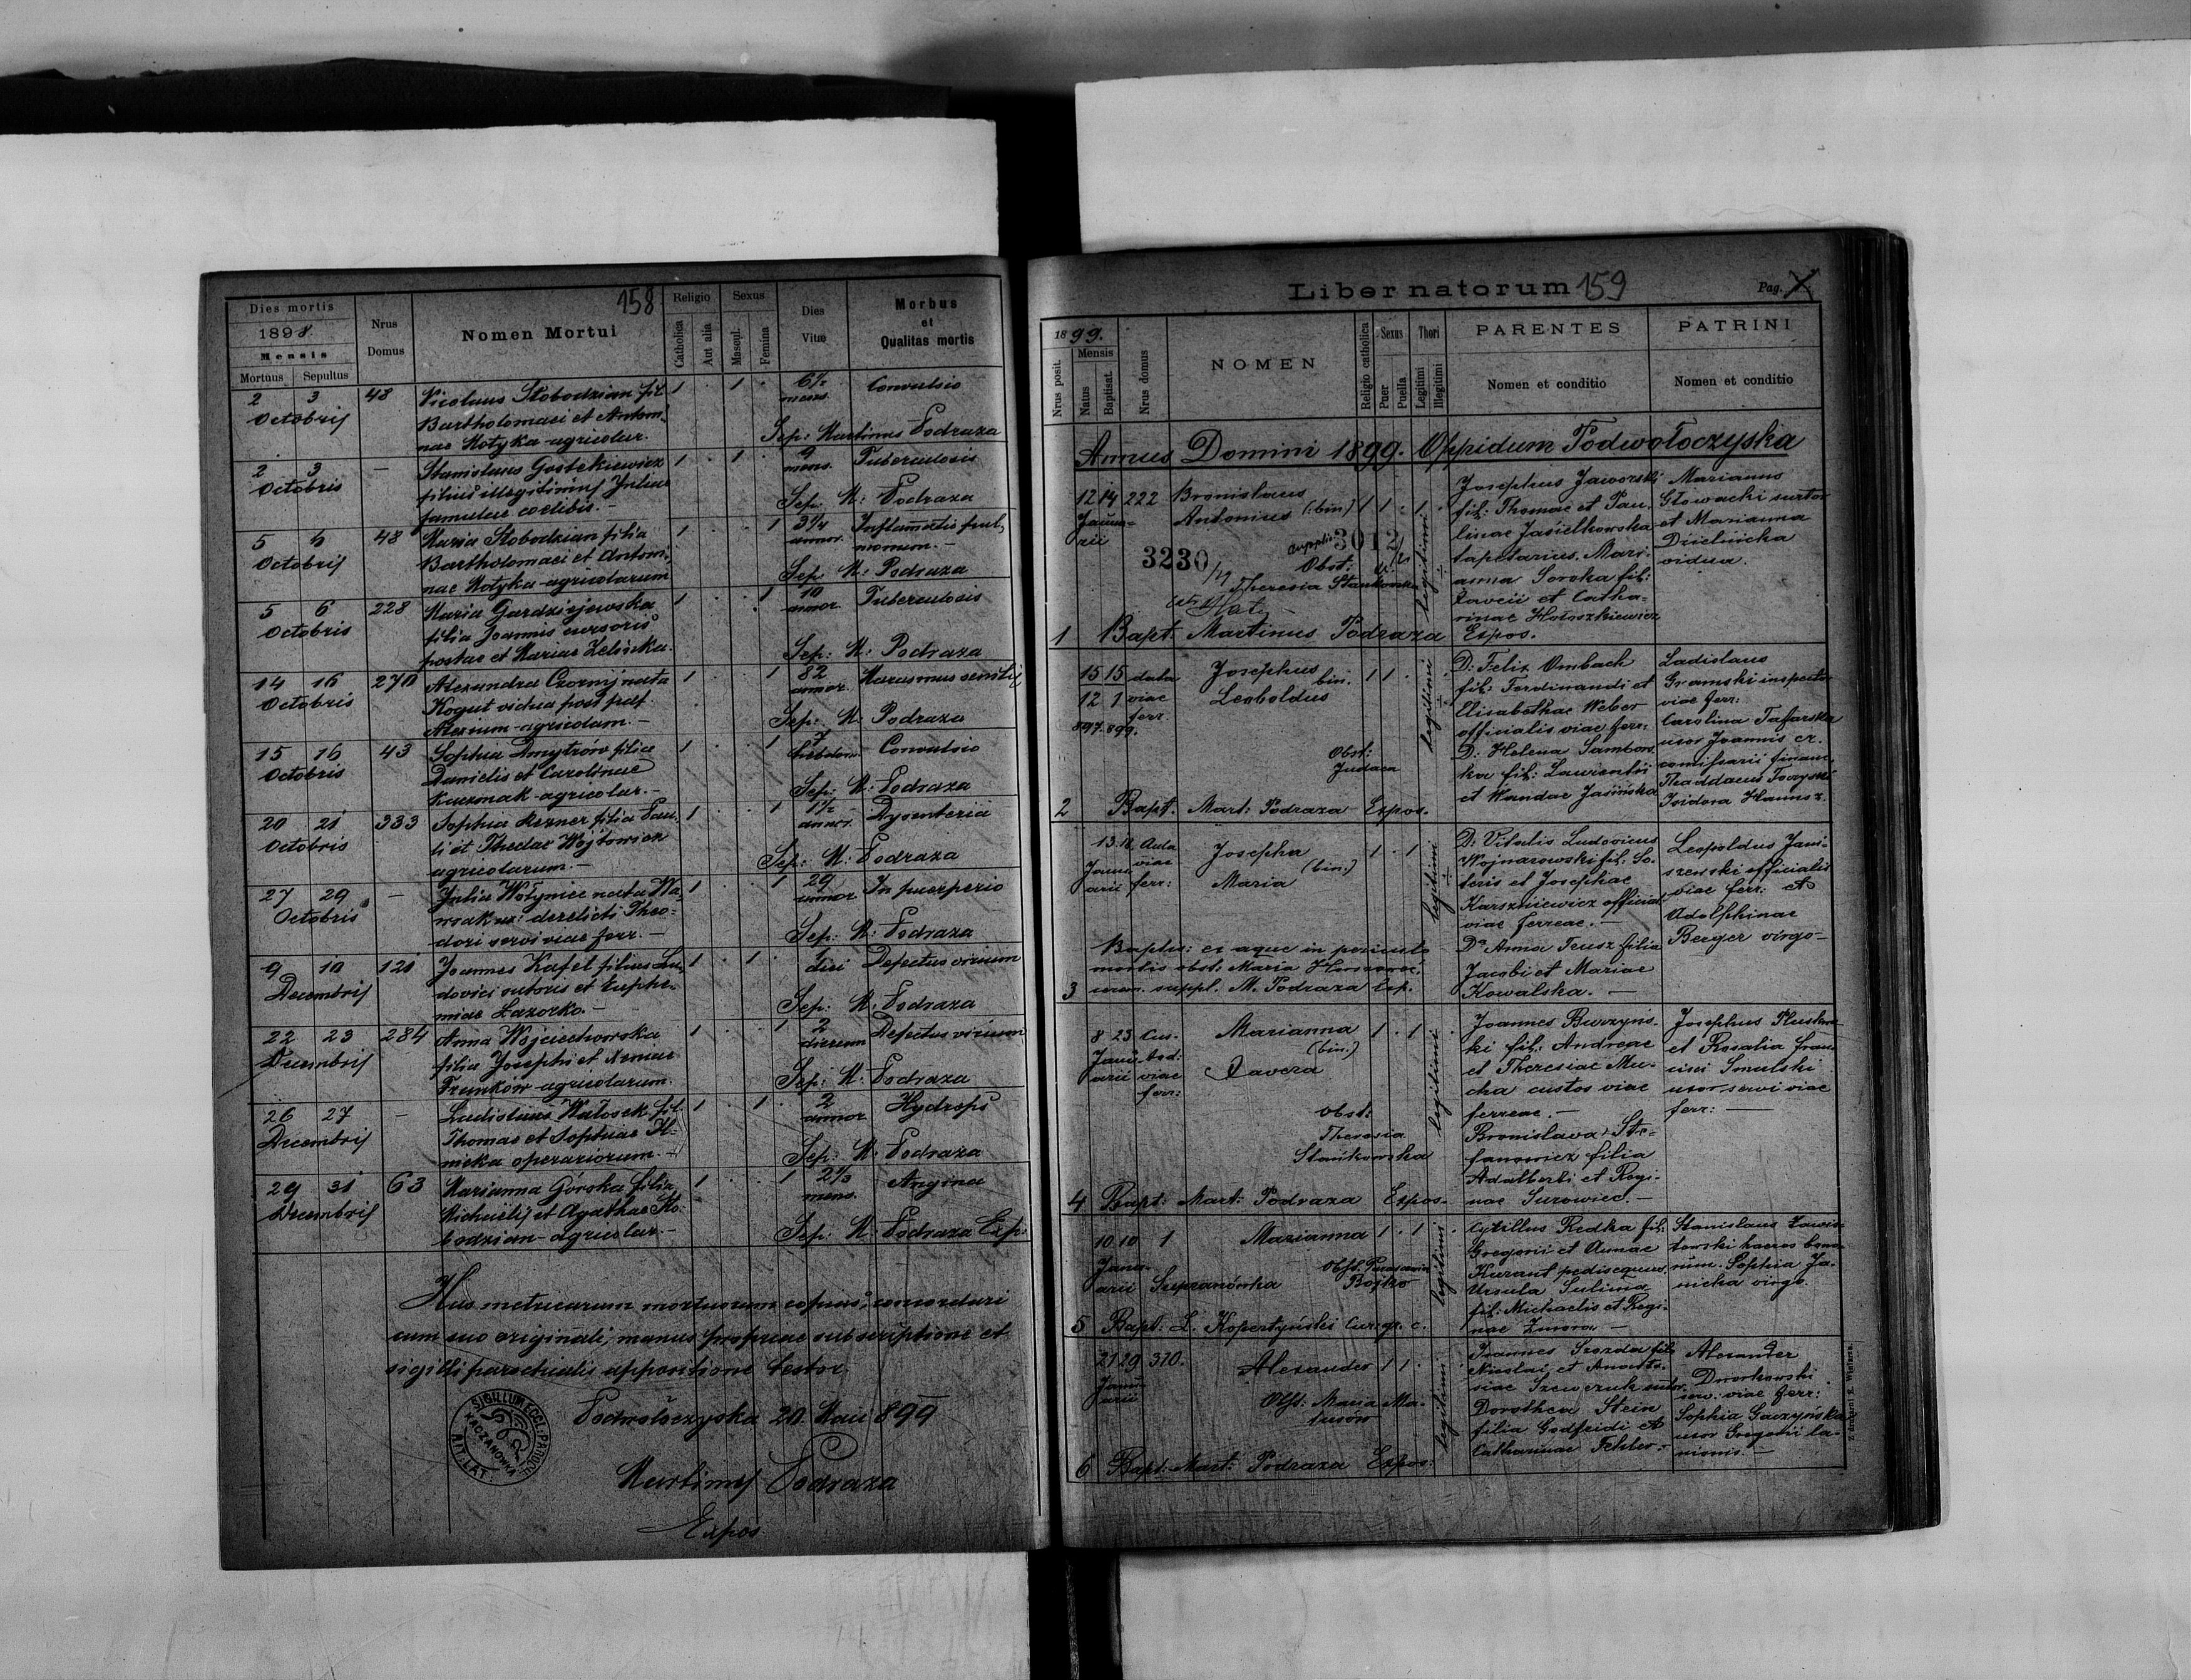 158
Dies mortis
1898.
Mensis
Mortuus Sepultus
Nrus Domus
Nomen Mortui
Religio
Catholica
Aut alia
Sexus
Mascul.
Femina
Dies Vitæ
Morbus et Qualitas mortis
2 3 48 Nicolaus Slobodzian fil. 1 . 1 . 6½ Convulsio
Octobris Bartholomaei et Anton. mens.
nae Motyka agricolar. Sep: Martinus Podraza
2 3 — Stanislaus Gostekiewicz 1 . 1 . 9 Tuberculosis
Octobris filius illegitimus Juliae mens.
famulae coelibis.- Sep: M: Podraza
5 6 48 Maria Slobodzian filia 1 . . 1 3¼ Inflamatio pul,
Octobris Bartholomaei et Antoni, annor. monum.-
nae Motyka agricolarum Sep M: Podraza
5 6 228 Maria Gardziejewska 1 . . 1 10 Tuberculosis
Octobris filia Joannis cursoris annor.
postae et Mariae Zelińska. Sep: M: Podraza
14 16 270 Alexandra Czornij nata 1 . . 1 82 Marasmus senilis
Octobris Kogut vidua post annor.
agricolam.- Sep: M: Podraza
15 16 43 Sophia Dmytrów filia 1 . . 1 7 Convulsio
Octobris Danielis et Carolinae hebdom.
Kuzmak-agricolar.- Sep: M: Podraza
20 21 333 Sophia filia Pau, 1 . . 1 1½ Dysenteria
Octobris li et Theclae Wójtowicz annor.
agricolarum.- Sep: M: Podraza
27 29 — Julia Wołyniec nata 1 . . 1 29 In puerperio
Octobris derelicti Theo= annor
dori servi viae ferr.- Sep: M: Podraza
9 10 121 Joannes Kafel filius Lu, 1 . 1 . 1 Defectus virium
Decembris dovici sutoris et Euphe, diei
miae Łazorko.- Sep: M: Podraza
22 23 284 Anna Wojciechowska 1 . . 1 2 Defectus virium
Decembris filia Josephi et Annae dierum
agricolarum. Sep: M: Podraza
26 27 — Ladislaus Watosek fil. 1 . 1 . 2 Hydrops
Decembris Thomae et Sophiae annor
operariorum.- Sep: M: Podraza
29 31 63 Marianna Górska filia 1 . . 1 2⅓ Angina
Decembris Michaelis et Agathae Slo. mens.
bodzian-agricolar.- Sep: M: Podraza Exp:
Has metricarum mortuorum copias, concordari
cum suo originali, manus propriae subscriptione et
sigilli parochialis appositione testor.
Podwołoczyska 20 Maii 899
Martinus Podraza
Expos
SIGILLUM ECCL. PAROCH. RIT. LAT. KACZANÓWKA
Liber natorum 159
Pag.
1899.
Nrus posit.
Mensis
Natus
Baptisat.
Nrus domus
NOMEN
Religio catholica
Sexus
Puer
Puella
Thori
Legitimi
Illegitimi
PARENTES
Nomen et conditio
PATRINI
Nomen et conditio
Annus Domini 1899. Oppidum Podwołoczyska
12 14 222 Bronislaus 1 1 . 1 . Josephus Jaworski Marianus
Janu- Antonius (bin) fil: Thomae et Pau, Głowacki sartor
arii linae Jasielkowska et Marianna
3230 3012 tapetarius. Mari- Dzielnicka
Obst: anna Soroka fil: vidua.
Theresia Stankowska et Catha-
rinae Hołoszkiewicz
1 Bapt. Martinus Podraza Expos.
legitimi
15 15 aula Josephus bin. 1 1 . D: Felix Ombach Ladislaus
12 1 viae Leopoldus fil: Ferdinandi et Gramski inspector
897. 899. ferr. Elisabethae Weber viae ferr:
officialis viae ferr: Carolina
Obst: D: Helena Sambors. uxor Joannis cr.
Judaea ka fil: Laurentii comissarii finan.
et Wandae Jasińska Thaddaeus
2 Bapt. Mart: Podraza Expos. Isidora
legitimi
13 18 Aula Josepha 1 . 1 D: Vitalis Ludovicus Leopoldus Jani-
Janu- viae (bin:) Wojnarowski fil: So- szewski officialis
arii ferr: Maria teris et Josephae viae ferr: et
Karszniewicz official: Adolphinae
viae ferreae.- Berger virgo-
Baptis: ex aqua in periculo Dª Anna Teusz filia
mortis obst. Maria Jacobi et Mariae
3 cerem. suppl. M. Podraza Exp. Kowalska.-
legitimi
8 23 Cus- Marianna 1 . 1 . Joannes Burzyns- Josephus
Janu- tod: (bin:) ki fil: Andreae et Rosalia Fran
arii viae Xavera et Theresiae Mu- cisci Smulski
ferr: cha custos viae uxor servi viae
Obst: ferreae.- ferr:-
Theresia Bronislava Ste-
Stańkowska fanowicz filia
Adalberti et Regi-
4 Bapt: Mart: Podraza Expos. nae Surowiec.-
legitimi
10 10 1 Marianna 1 . 1 . Cyrillus Redka fil: Stanislaus
Janu- Gregorii et Annae haeres bono-
arii Supranówka Obst. Parasavia Bojko Kurant pedisequus. rum. Sophia Ja-
Ursula Sulima nicka virgo.
fil: Michaelis et Regi-
5 Bapt: L. Kopertyński Cur. gr. c. nae Zmora-
legitimi
21 29 310. Alexander 1 1 . Joannes fil Alexander
Janu- Nicolai et Anasta- Dworkowski
arii siae Szewczuk sutor. serv: viae ferr:
Obst: Maria Ma- Dorothea Stein Sophia
tusów filia Godfridi et uxor Gregorii la-
6 Bapt: Mart: Podraza Expos: Catharinae nionis.-
legitimi